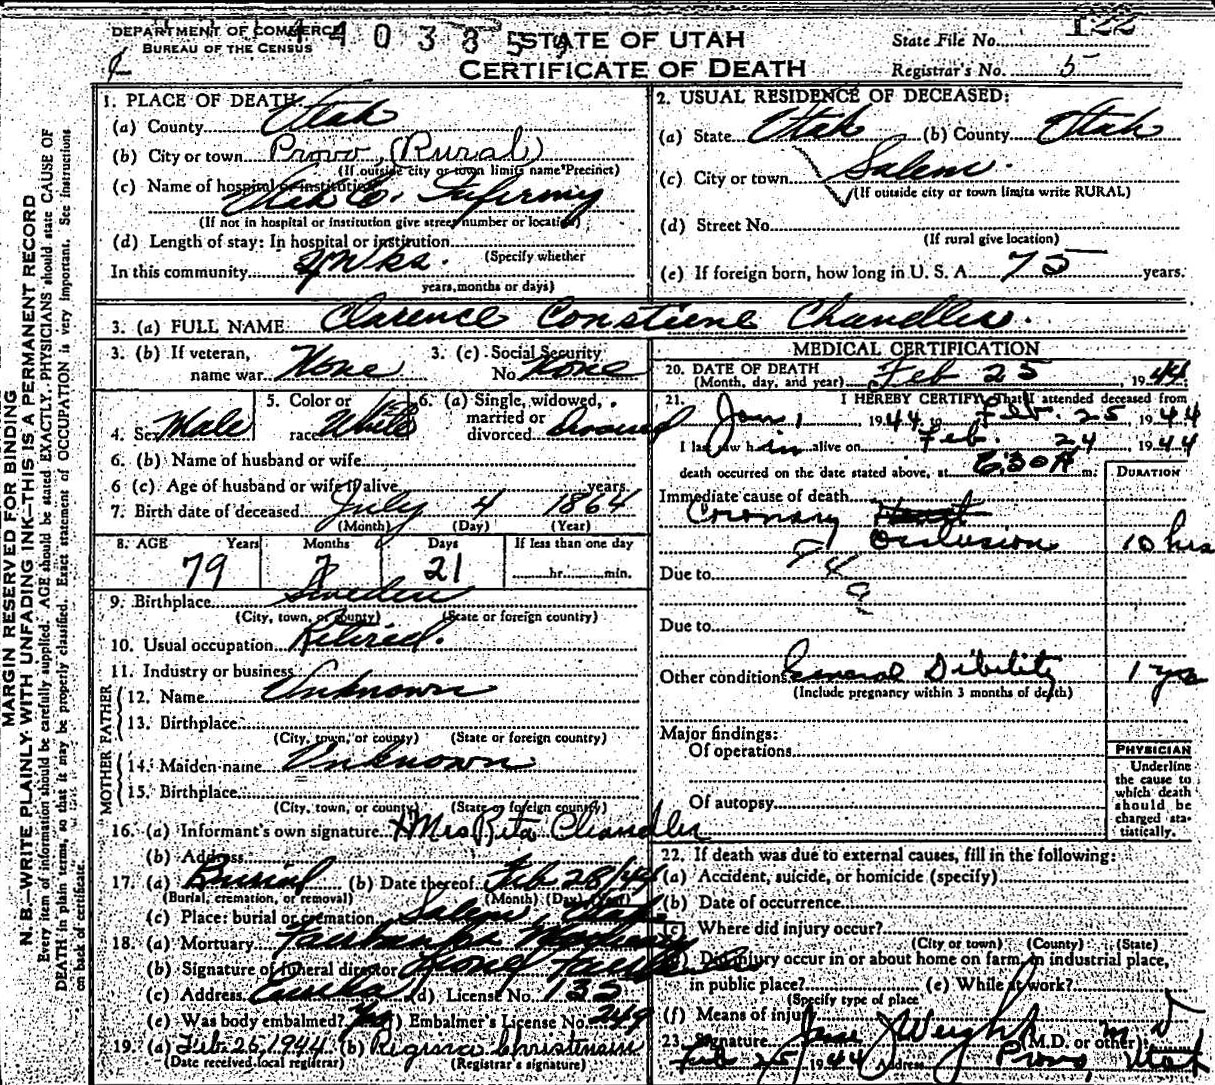 DEPARTMENT OF COMMERCE
BUREAU OF THE CENSUS
STATE OF UTAH
CERTIFICATE OF DEATH
State File No. 122
Registrar's No. 5
MARGIN RESERVED FOR BINDING
N. B.—WRITE PLAINLY WITH UNFADING INK—THIS IS A PERMANENT RECORD
Every item of information should be carefully supplied. AGE should be stated EXACTLY. PHYSICIANS should state CAUSE OF
DEATH in plain terms, so that it may be properly classified. Exact statement of OCCUPATION is very important. See instructions
on back of certificate.
1. PLACE OF DEATH:
(a) County Utah
(b) City or town Provo (Rural)
(If outside city or town limits name Precinct)
(c) Name of hospital or institution
Utah Co. Infirmy
(If not in hospital or institution give street number or location)
(d) Length of stay: In hospital or institution
(Specify whether
In this community Wks.
years, months or days)
2. USUAL RESIDENCE OF DECEASED:
(a) State Utah (b) County Utah
(c) City or town Salem.
(If outside city or town limits write RURAL)
(d) Street No.
(If rural give location)
(e) If foreign born, how long in U. S. A. 75 years.
3. (a) FULL NAME Clarence Constiene Chandler.
3. (b) If veteran, name war None
3. (c) Social Security No. None
4. Sex Male
5. Color or race White
6. (a) Single, widowed, married or divorced divorced
6. (b) Name of husband or wife
6 (c) Age of husband or wife if alive years
7. Birth date of deceased July 4 1864
(Month) (Day) (Year)
8. AGE Years Months Days If less than one day
79 7 21 hr. min.
9. Birthplace Sweden
(City, town, or county) (State or foreign country)
10. Usual occupation Retired.
11. Industry or business
FATHER
12. Name Unknown
13. Birthplace
(City, town, or county) (State or foreign country)
MOTHER
14. Maiden name Unknown
15. Birthplace
(City, town, or county) (State or foreign country)
16. (a) Informant's own signature X Mrs Rita Chandler
(b) Address
17. (a) Burial (b) Date thereof Feb 28/44
(Burial, cremation, or removal) (Month) (Day) (Year)
(c) Place: burial or cremation Salem, Utah
18. (a) Mortuary Fairbanks Mortuary
(b) Signature of funeral director
(c) Address Eureka (d) License No. 135
(e) Was body embalmed? Yes (f) Embalmer's License No. 249
19. (a) Feb 26, 1944 (b) Regina Christensen
(Date received local registrar) (Registrar's signature)
MEDICAL CERTIFICATION
20. DATE OF DEATH
(Month, day, and year) Feb 25, 1944
21. I HEREBY CERTIFY, That I attended deceased from
Jan 1, 1944 to Feb. 25 1944
I last saw him alive on Feb. 24, 1944
death occurred on the date stated above, at 6:30 A m.
DURATION
Immediate cause of death
Coronary
Occlusion 10 hrs
Due to
Due to
Other conditions General Dibility 1 yrs
(Include pregnancy within 3 months of death)
Major findings:
Of operations
Of autopsy
PHYSICIAN
Underline
the cause to
which death
should be
charged sta-
tistically.
22. If death was due to external causes, fill in the following:
(a) Accident, suicide, or homicide (specify)
(b) Date of occurrence
(c) Where did injury occur?
(City or town) (County) (State)
(d) Did injury occur in or about home on farm, in industrial place,
in public place? (e) While at work?
(Specify type of place
(f) Means of injury
23. Signature (M.D. or other) M D
Feb 25, 1944 Address Provo, Utah